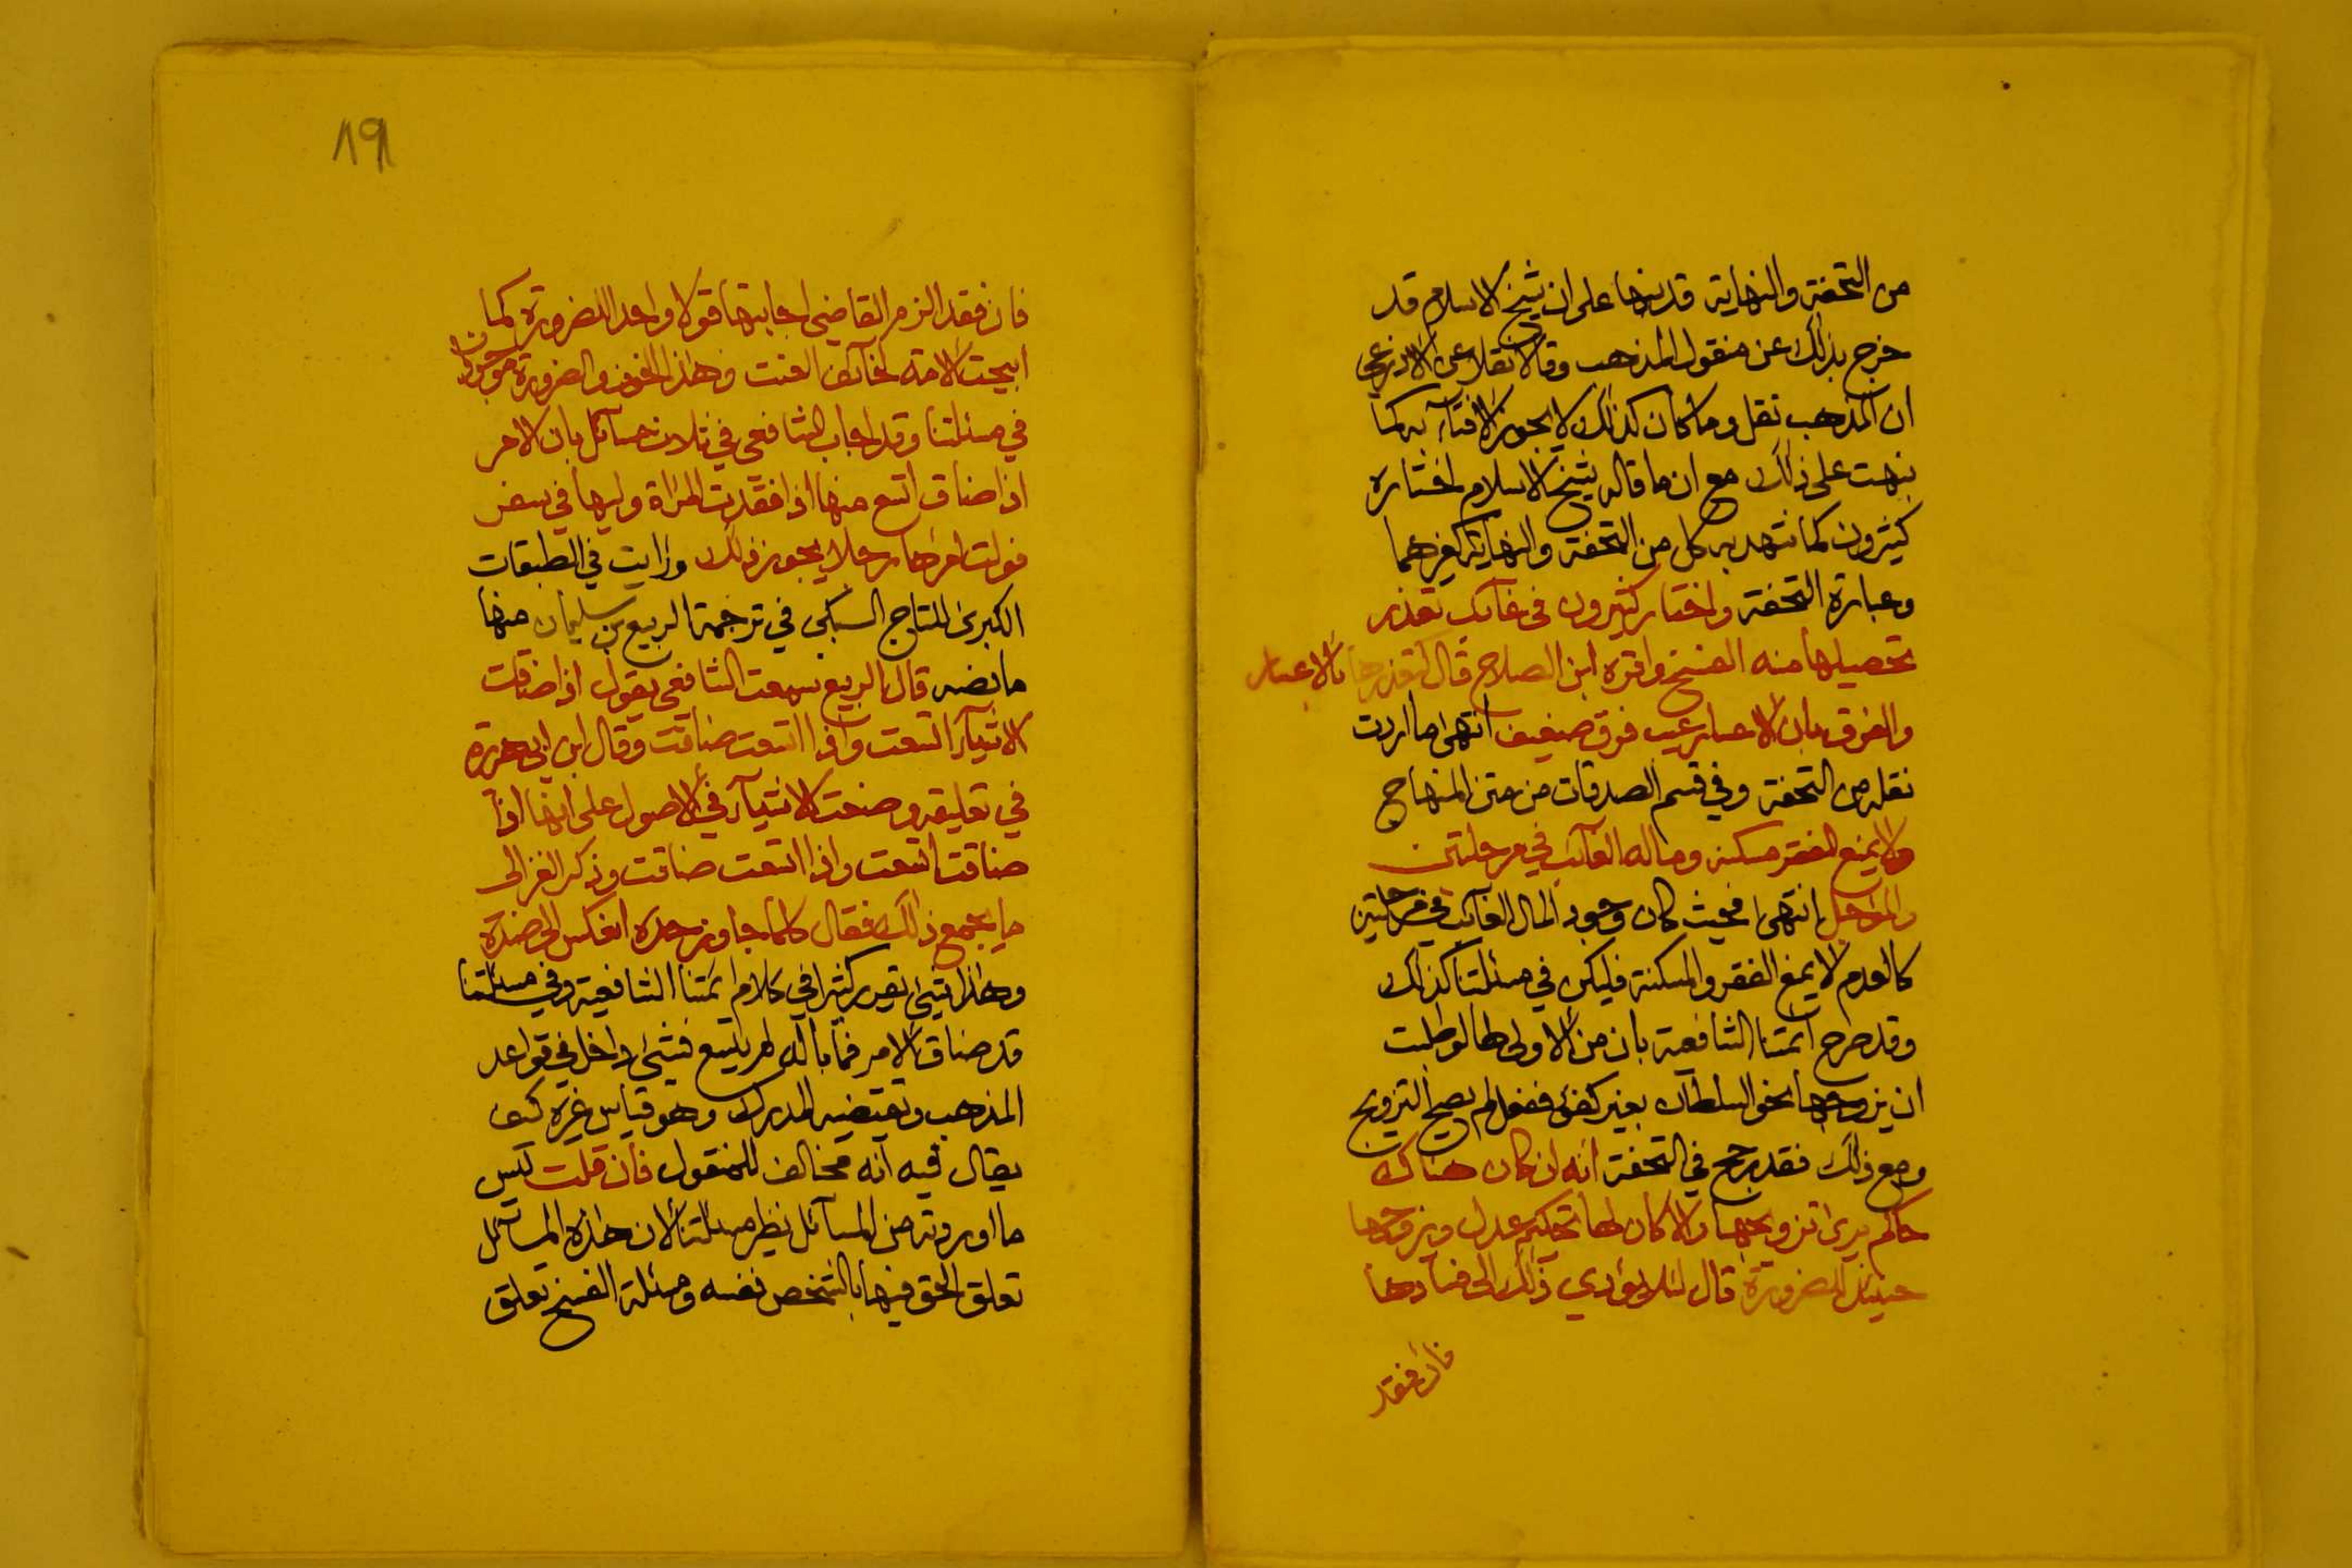 من التحفة والنهاية قد نبها على ان شيخ الاسلام قد
خرج بذلك عن منقول المذهب وقالا نقلا عن الاذرعي
ان المذهب نقل وما كان كذلك لا يجوز الافتآء به كما
نبهت على ذلك مع ان ما قاله شيخ الاسلام اختاره
كثيرون كما شهد به كل من التحفة والنهاية كغيرهما
وعبارة التحفة واختار كثيرون في غآئب تعذر
تحصيلها منه الفسخ وافره ابن الصلاح قال كتعذرها بالاعسار
والفرق بان الاعسار عيب فرق ضعيف انتهى ما اردت
نقله من التحفة وفي قسم الصدقات من متن المنهاج
ولا يمنع الفقر مسكنه وماله الغآئب في مرحلتين
والمؤجل انتهى فحيث كان وجود المال الغآئب في مرحلتين
كالعدم لا يمنع الفقر والمسكنة فليكن في مسئلتنا كذلك
وقد صرح ائمتنا الشافعية بان من لا ولى لها لو طلبت
ان يزوجها نحو السلطان بغير كفئ ففعل لم يصح التزويج
ومع ذلك فقد رجح في التحفة انه ان كان هناك
حاكم يرى تزويجها والا كان لها تحكيم عدل ويزوجها
حينئذ للضرورة قال لئلا يؤدي ذلك الى فسادها
فان فقد
١٩١
فان فقد الزم القاضي اجابتها قولا واحدا للضرورة كما
ابيحت الامة لخآئف العنت وهذا الخوف والضرورة موجودان
في مسئلتنا وقد اجاب الشافعي في ثلاث مسآئل بان الامر
اذا ضاق اتسع منها اذا فقدت المرأة وليها في سفر
فولت امرها رجلا يجوز ذلك ورايت في الطبقات
الكبرى للتاج السبكي في ترجمة الربيع بن سليمان منها
ما نصه قال الربيع سمعت الشافعي يقول اذا ضاقت
الاشيآء اتسعت واذا اتسعت ضاقت وقال ابن ابي هريرة
في تعليقه وضعت الاشيآء في الاصول على انها اذا
ضاقت اتسعت واذا اتسعت ضاقت وذكر الغزالى
ما يجمع ذلك فقال كلما جاوز حده انعكس الى ضده
وهذا شيئ تقرر كثيرا في كلام ائمتنا الشافعية وفي مسئلتنا
قد ضاق الامر فما باله لم يتسع فشيئ داخل في قواعد
المذهب وتقتضيه المدرك وهو قياس غيره كيف
يقال فيه انه مخالف للمنقول فان قلت ليس
ما اوردته من المسآئل نظير مسئلتنا لان هذه المسآئل
تعلق الحق فيها بالشخص نفسه ومسئلة الفسخ تعلق